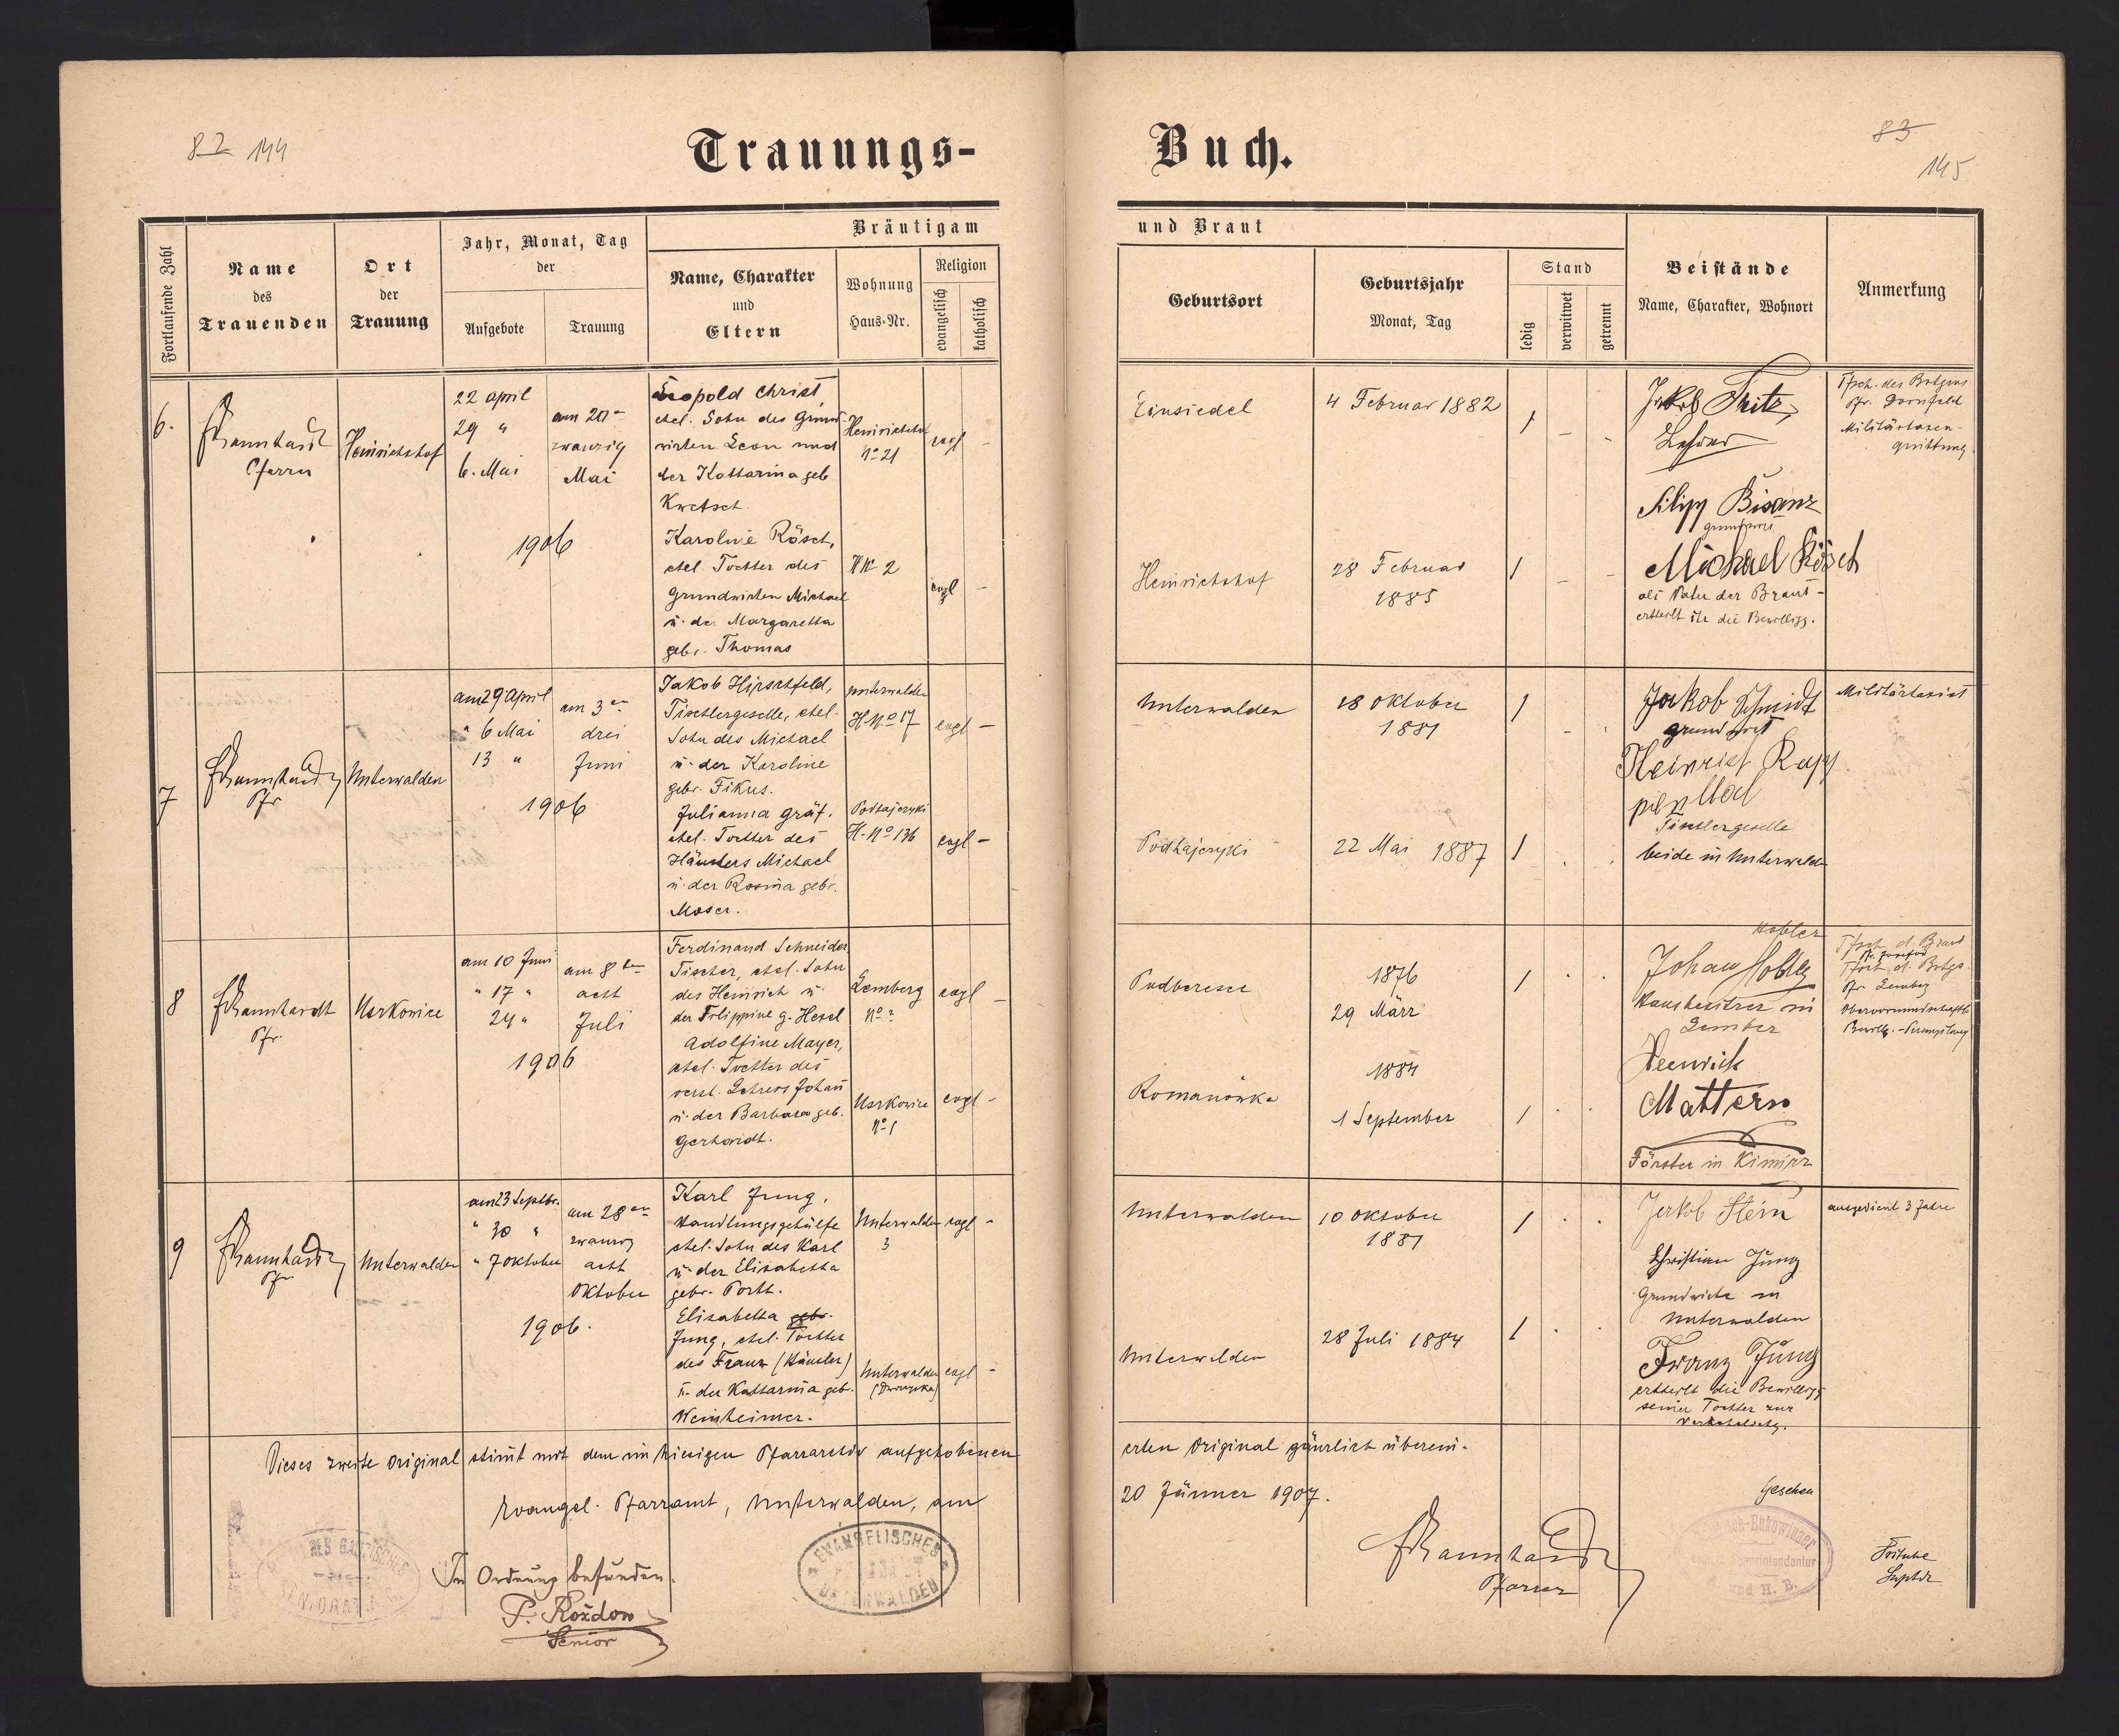 82 144
Trauungs-
Buch.
83
145
Fortlaufende Zahl
Name
des
Trauenden
Ort
der
Trauung
Jahr, Monat, Tag
der
Aufgebote
Trauung
Bräutigam
Name, Charakter
und
Eltern
Wohnung
Haus-Nr.
Religion
evangelisch
katholisch
und Braut
Geburtsort
Geburtsjahr
Monat, Tag
Stand
ledig
verwitwet
getrennt
Beistände
Name, Charakter, Wohnort
Anmerkung
6.
Pfarrer
Heinrichshof
22 April
29 "
6. Mai
am 20
zwanzig
Mai
1906
Leopold Christ,
ehel. Sohn des Grund-
wirten Leon und
der Katharina geb
Kretsch.
Heinrichshof
No 21
evgl -
Einsiedel
4 Februar 1882
1 - -
Jakob Fritz,
Lehrer
Filipp Bisanz
grundwirt
Tfsch. des Brtgms
Pfr. Dornfeld
Militärtaxen-
quittung.
Karoline Rösch,
ehel. Tochter des
Grundwirten Michael
u. der Margaretha
gebr. Thomas
HN 2
evgl -
Heinrichshof
28 Februar
1885
1 - -
Michael Rösch
als Vater der Braut -
ertheilt ihr die Bewilligg.
7
Pfr
Unterwalden
am 29 April
" 6 Mai
13 "
am 3
drei
Juni
1906
Jakob Hirschfeld,
Tischlergeselle, ehel.
Sohn des Michael
u. der Karoline
gebr. Fikus.
Unterwalden
H-No 17
evgl -
Unterwalden
18 Oktober
1881
1
Jakob Schmidt
grundwirt
Heinrich Rapp
Tischlergeselle
beide in Unterwalden
Militärtaxist
Julianna Gräf.
ehel. Tochter des
Häuslers Michael
u. der Rosina gebr.
Moser.
Podhajczyki
H-No 136
evgl -
Podhajczyki
22 Mai 1887
1
8
Pfr.
Uszkowice
am 10 Juni
" 17 "
24 "
am 8 ten
acht
Juli
1906
Ferdinand Schneider
Tischer, ehel. Sohn
des Heinrich u.
der Filippine g. Hesel
Lemberg
No ?
evgl -
Podberesce
1876
29 März
1
Kohler
Hausbesitzer in
Lemberg
Heinrich
Mattern
Förster in Kimirz
Tfsch d. Braut
Tfsch d. Brtgs.
Pfr Lemberg
Adolfine Mayer,
ehel. Tochter des
verst. Lehrers Johann
u. der Barbara geb.
Gerhardt.
Uszkowice
No 1
evgl -
Romanówka
1884
1 September
1
9
Pfr
Unterwalden
am 23 Septbr.
" 30 "
" 7 Oktober
am 28
zwanzig
acht
Oktober
1906.
Karl Jung,
Handlungsgehülfe
ehel. Sohn des Karl
u. der Elisabetha
gebr. Porth.
Unterwalden
3
evgl -
Unterwalden
10 Oktober
1881
1
Jakob Stein
Christian Jung
Grundwirte in
Unterwalden
ausgedient 3 Jahre
Elisabetha gebr.
Jung, ehel. Tochter
des Franz (Häusler)
u. der Katharina geb.
Weinheimer.
Unterwalden
evgl -
Unterwalden
28 Juli 1884
1
Franz Jung
ertheilt die Bewilligg
seiner Tochter zur
Verehelichg.
Dieses zweite Original stimt mit dem im hiesigen Pfarrarchiv aufgehobenen
ersten Original gänzlich überein.
Evangel. Pfarramt, Unterwalden, am
20 Jänner 1907.
Pfarrer
Gesehen
In Ordnung befunden.
Senior
EVANGELISCHES
UNTERWALDEN